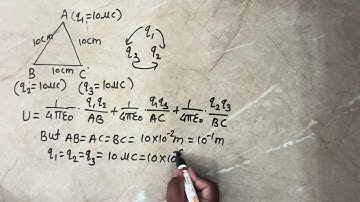 A (q₁=10μC)
10cm 10cm
B 10cm C
(q₂=10μC) (q₃=10μC)
q₁
q₃ q₂
U = 1/4πε₀ · q₁q₂/AB + 1/4πε₀ · q₁q₃/AC + 1/4πε₀ · q₂q₃/BC
But AB=AC=BC= 10×10⁻²m = 10⁻¹m
q₁=q₂=q₃= 10μC=10×10